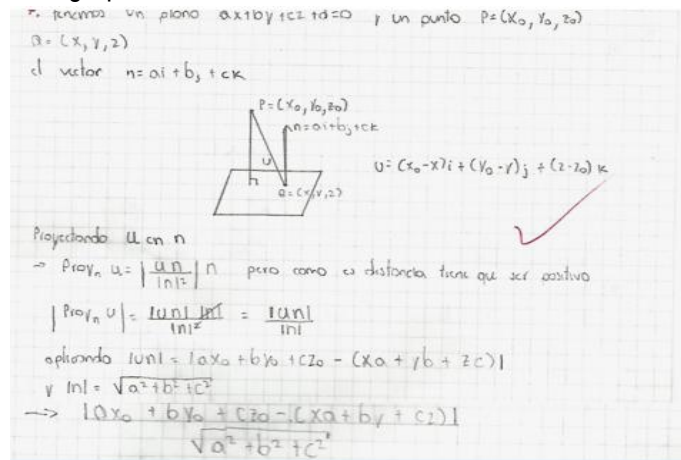 7. tenemos un plano ax+by+cz+d=0 y un punto P=(x₀, y₀, z₀)
Q=(x, y, z)
el vector n=ai+bj+ck
P=(x₀, y₀, z₀)
n=ai+bj+ck
u
h
Q=(x, y, z)
u=(x₀-x)i+(y₀-y)j+(z-z₀)k
Proyectando u en n
→ Proyₙ u=|un/|n|²| n pero como es distancia tiene que ser positivo
|Proyₙ u|=|un| |n|/|n|² = |un|/|n|
aplicando |un|=|ax₀+by₀+cz₀-(xa+yb+zc)|
y |n|=√a²+b²+c²
→ |ax₀+by₀+cz₀-(xa+by+cz)|
√a²+b²+c²